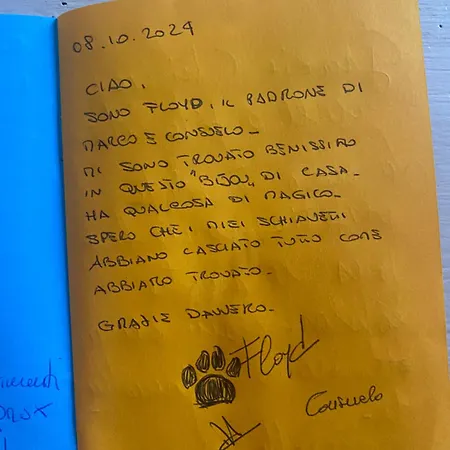 08.10.2024
CIAO,
SONO FLOYD, IL PADRONE DI
MARCO E CONSUELO_
MI SONO TROVATO BENISSIMO
IN QUESTO "BIJOU" DI CASA_
HA QUALCOSA DI MAGICO_
SPERO CHE I MIEI SCHIAVETTI
ABBIANO LASCIATO TUTTO COME
ABBIAMO TROVATO_
GRAZIE DAVVERO_
Floyd
Consuelo